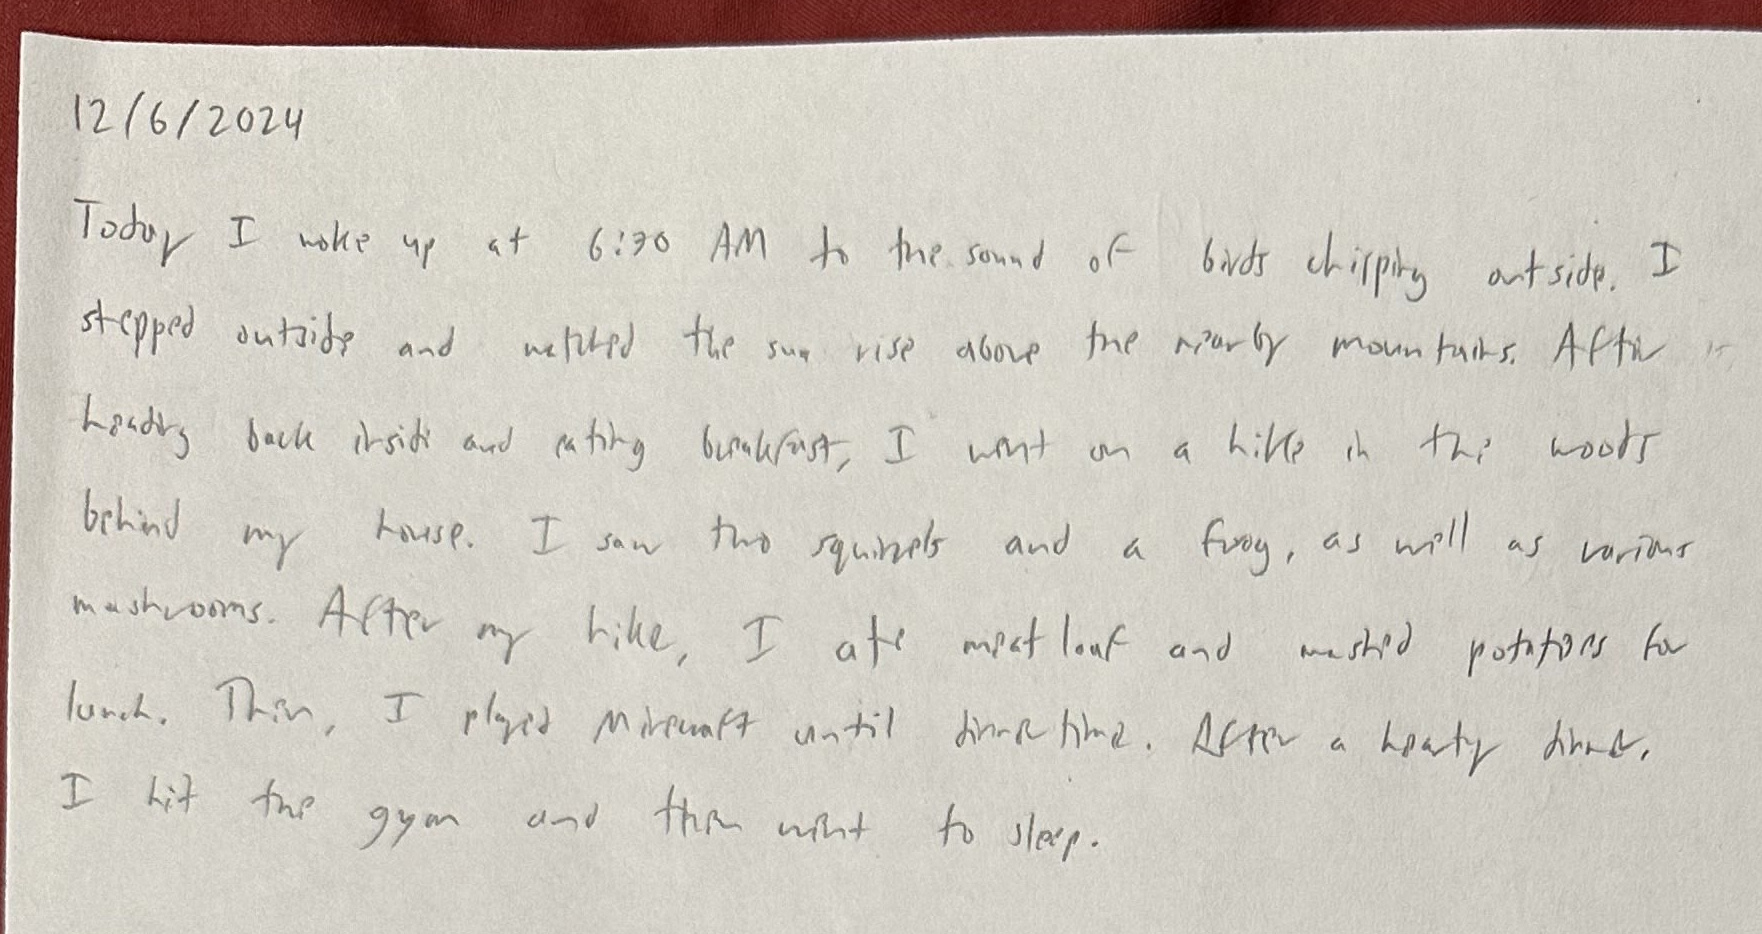 12/6/2024
Today I woke up at 6:30 AM to the sound of birds chirping outside. I
stepped outside and watched the sun rise above the nearby mountains. After
heading back inside and eating breakfast, I went on a hike in the woods
behind my house. I saw two squirrels and a frog, as well as various
mushrooms. After my hike, I ate meatloaf and mashed potatoes for
lunch. Then, I played Minecraft until dinnertime. After a hearty dinner,
I hit the gym and then went to sleep.